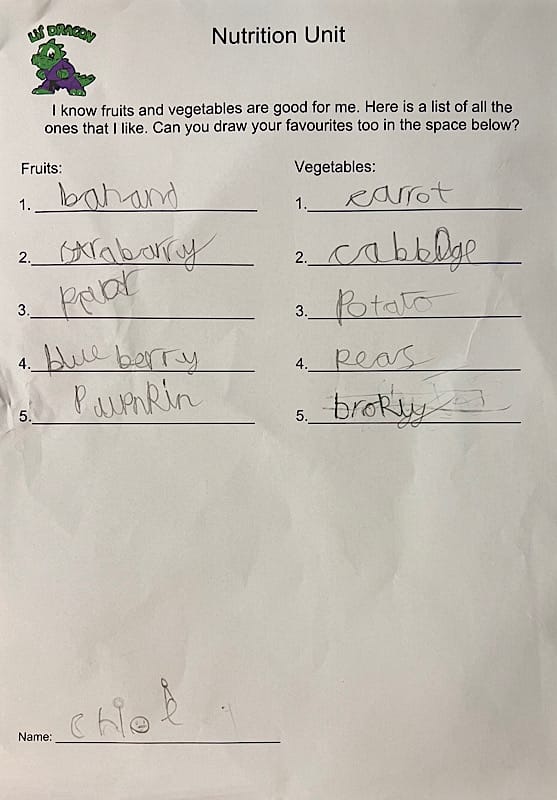 Lil' DRAGON
Nutrition Unit
I know fruits and vegetables are good for me. Here is a list of all the
ones that I like. Can you draw your favourites too in the space below?
Fruits:
Vegetables:
1. bahand
1. carrot
2. strabarry
2. cabbage
3.
3. Potato
4. blueberry
4. Peas
5. PuupnKin
5. broKyy
Name: Chloe